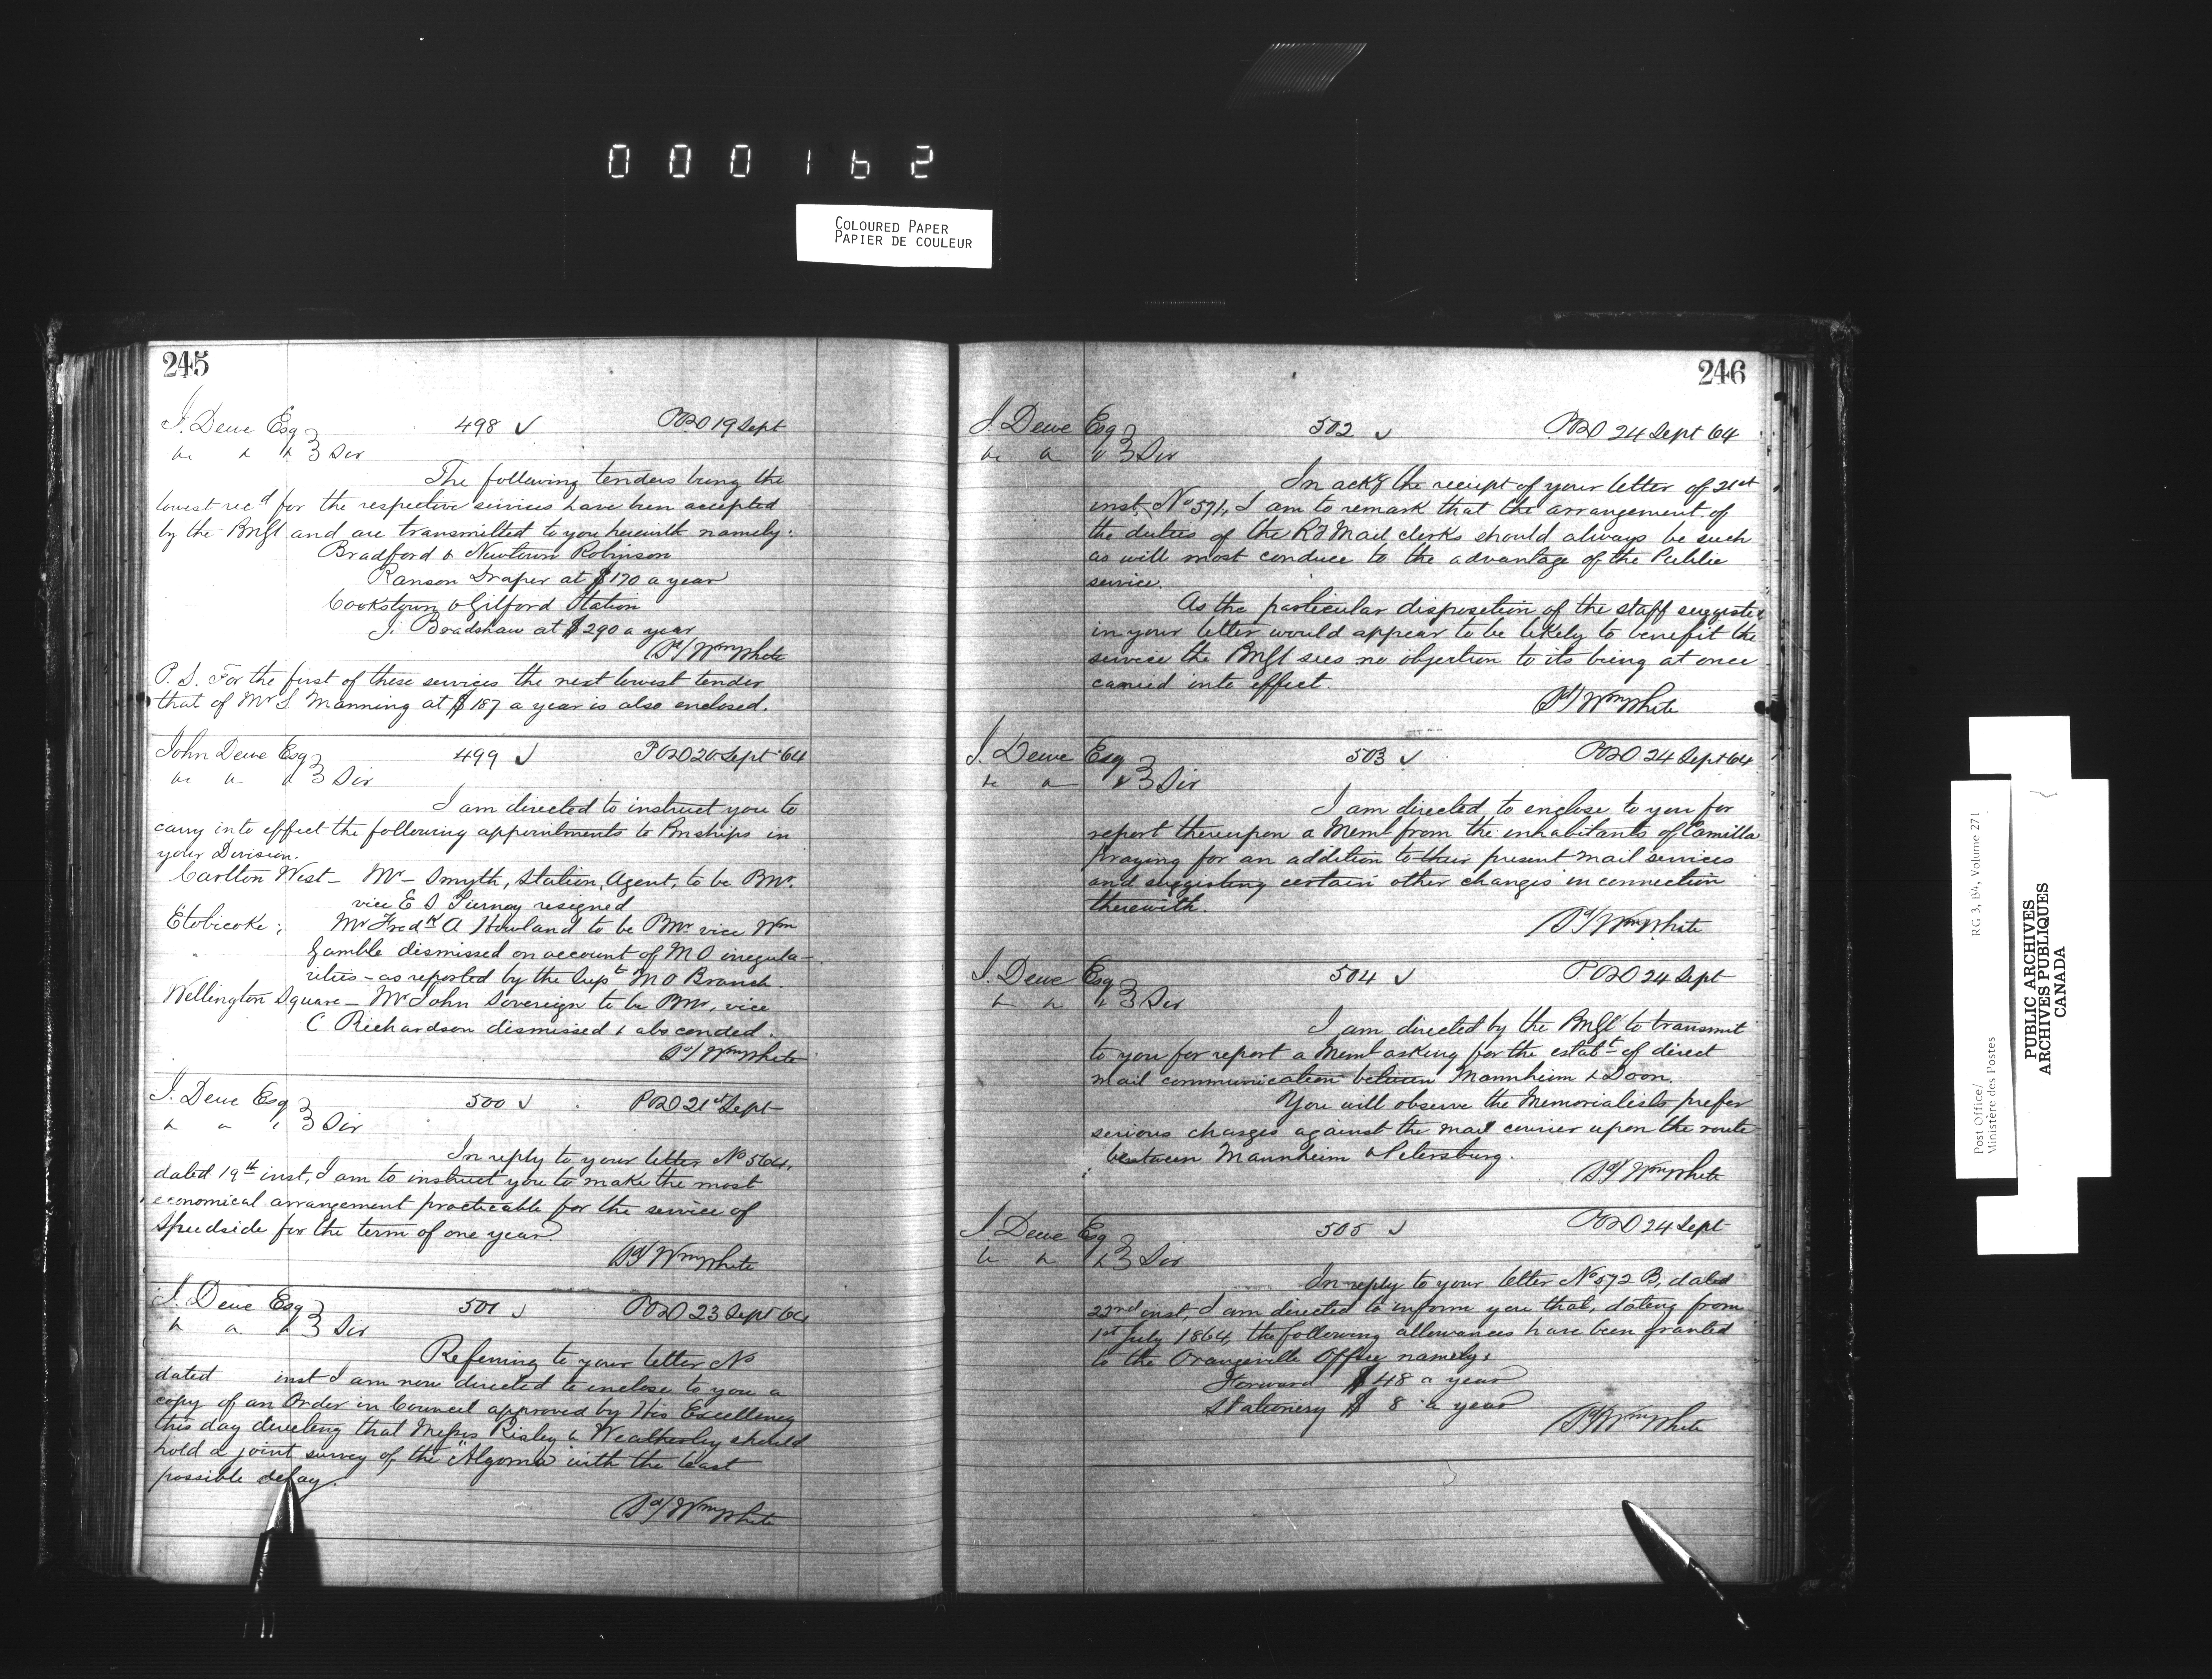 000162
COLOURED PAPER
PAPIER DE COULEUR
245
J. Dewe Esq 498 ✓ POD 19 Sept
&c & & 3 Sir
The following tenders being the
lowest recd for the respective services have been accepted
by the PMGl and are transmitted to you herewith namely:
Bradford & Newtown Robinson
Ranson Draper at $170 a year
Cookstown & Gilford Station
J. Bradshaw at $290 a year
Sd/ Wm White
P.S. For the first of these services the next lowest tender
that of Mr S Manning at $187 a year is also enclosed.
John Dewe Esq 499 ✓ POD 20 Sept 64
&c & & 3 Sir
I am directed to instruct you to
carry into effect the following appointments to Pmships in
your Division.
Carlton West - Mr - Smyth, Station Agent, to be Pmr.
vice E S resigned
Etobicoke; Mr Fredk A Howland to be Pmr vice Wm
Gamble dismissed on account of M O irregula-
rities - as reported by the Supt M O Branch.
Wellington Square - Mr John Sovereign to be Pmr, vice
C Richardson dismissed & absconded.
Sd/ Wm White
J. Dewe Esq 500 ✓ POD 21st Sept
& & & 3 Sir
In reply to your letter No 564,
dated 19th inst, I am to instruct you to make the most
economical arrangement practicable for the service of
Speedside for the term of one year.
Sd/ Wm White
J. Dewe Esq 501 ✓ POD 23 Sept 64
& & & 3 Sir
Referring to your letter No
dated inst I am now directed to enclose to you a
copy of an Order in Council approved by His Excellency
this day directing that Messrs Risley & Weatherley should
hold a joint survey of the "Algoma" with the least
possible delay.
Sd/ Wm White
246
J. Dewe Esq 502 ✓ POD 24 Sept 64
&c & & 3 Sir
In ackg the receipt of your letter of 21st
inst, No 571, I am to remark that the arrangement of
the duties of the Rd Mail clerks should always be such
as will most conduce to the advantage of the Public
service.
As the particular disposition of the staff suggested
in your letter would appear to be likely to benefit the
service the PMGl sees no objection to its being at once
carried into effect.
Sd/ Wm White
J. Dewe Esq 503 ✓ POD 24 Sept 64
&c & & 3 Sir
I am directed to enclose to you for
report thereupon a Meml from the inhabitants of Camilla
praying for an addition to their present mail services
and suggesting certain other changes in connection
therewith.
Sd/ Wm White
J. Dewe Esq 504 ✓ POD 24 Sept
& & & 3 Sir
I am directed by the PMGl to transmit
to you for report a Meml asking for the establt of direct
mail communication between Mannheim & Doon.
You will observe the Memorialists prefer
serious charges against the mail courier upon the route
between Mannheim & Petersburg.
Sd/ Wm White
J. Dewe Esq 505 ✓ POD 24 Sept
& & & 3 Sir
In reply to your letter No 572 B, dated
22nd inst, I am directed to inform you that, dating from
1st July 1864, the following allowances have been granted
to the Orangeville Office namely:
Forward $48 a year
Stationery $ 8 a year
Sd/ Wm White
Post Office/
Ministère des Postes
RG 3, B4, Volume 271
PUBLIC ARCHIVES
ARCHIVES PUBLIQUES
CANADA